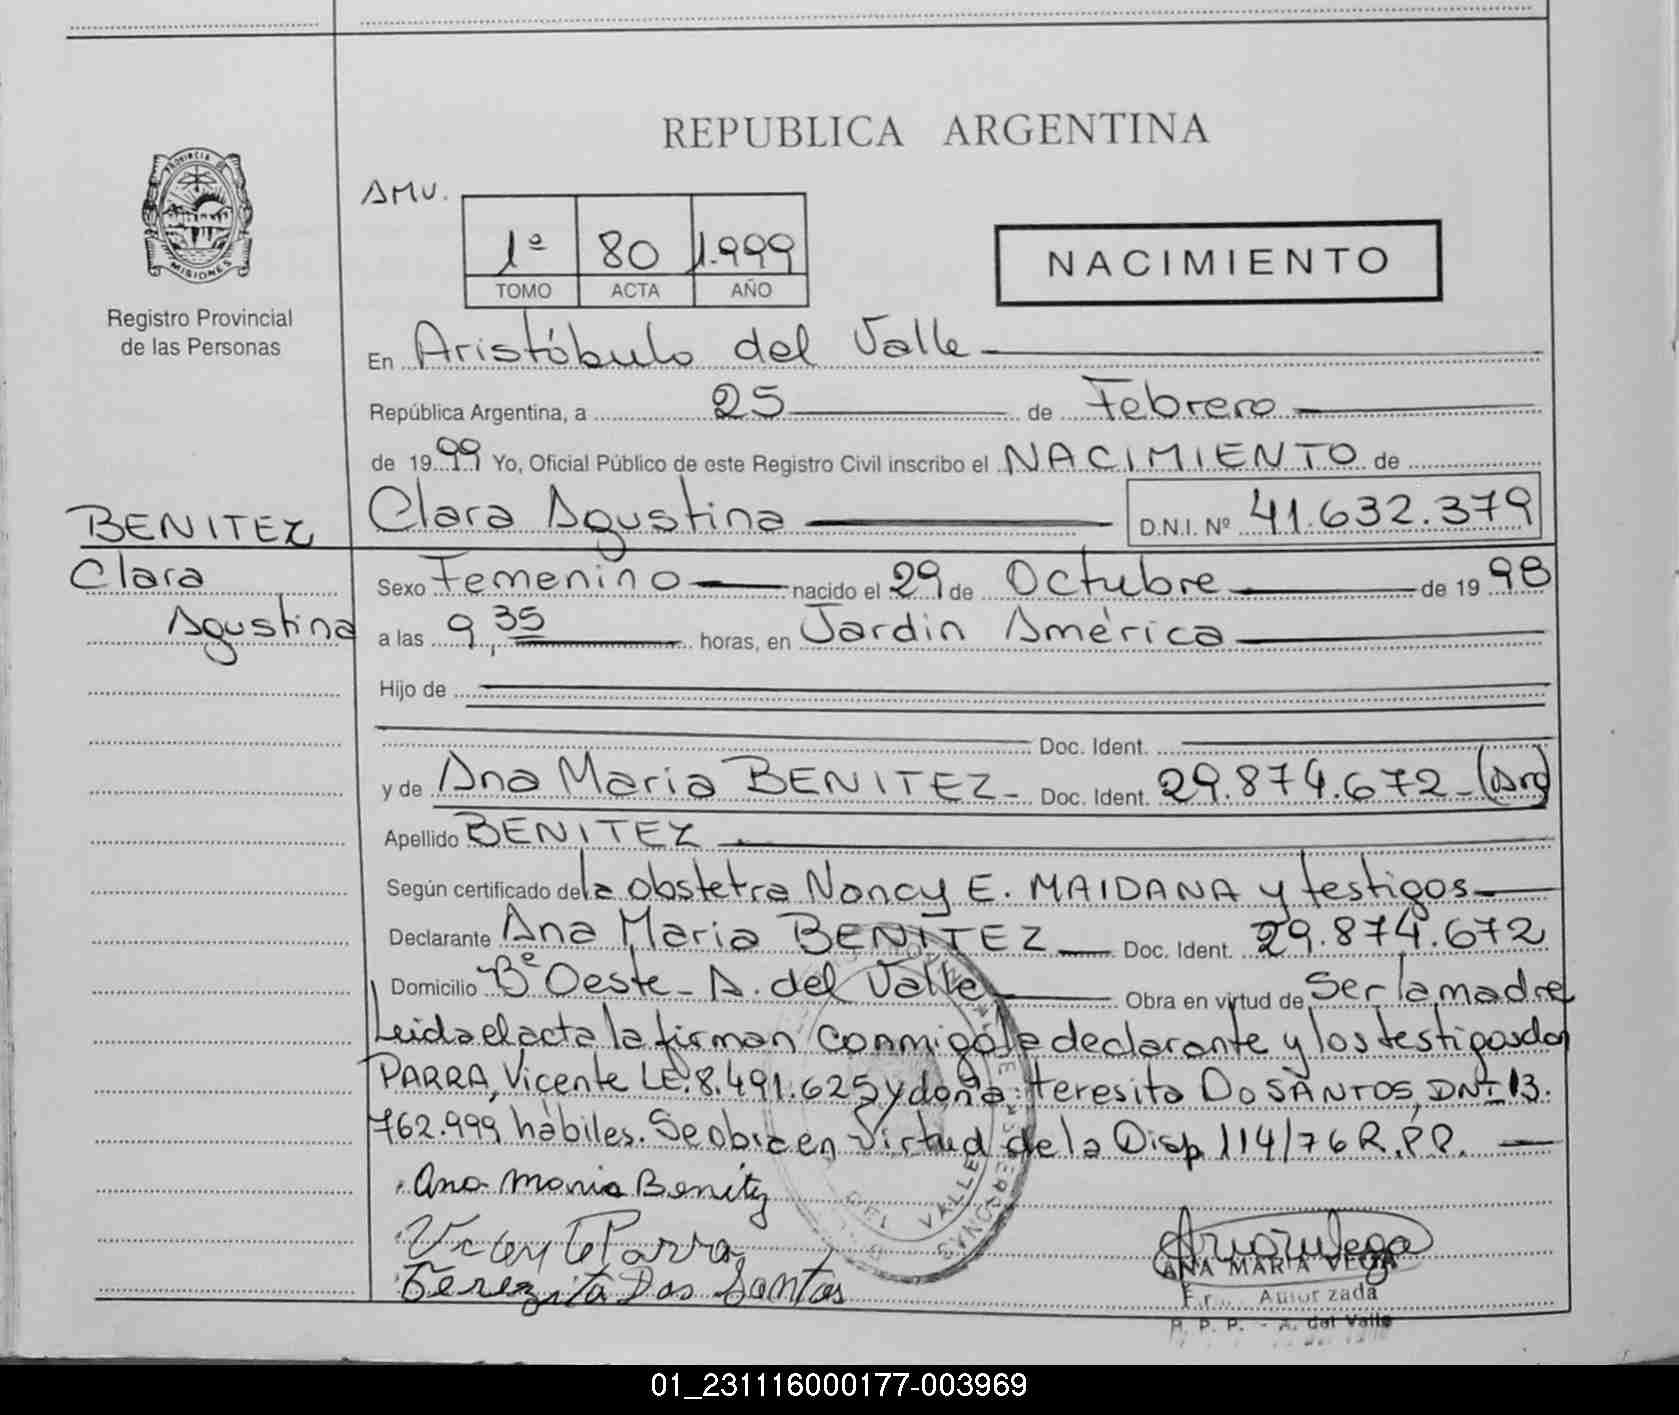 REPUBLICA ARGENTINA
PROVINCIA DE
MISIONES
Registro Provincial
de las Personas
AMV.
1ª 80 1.999
TOMO ACTA AÑO
NACIMIENTO
En Aristóbulo del Valle
República Argentina, a 25 de Febrero
de 1999 Yo, Oficial Público de este Registro Civil inscribo el NACIMIENTO de
BENITEZ
Clara Agustina D.N.I. Nº 41.632.379
Clara
Agustina
Sexo Femenino nacido el 29 de Octubre de 1998
a las 9,35 horas, en Jardin América
Hijo de
Doc. Ident.
y de Ana Maria BENITEZ- Doc. Ident. 29.874.672-(Arg)
Apellido BENITEZ
Según certificado de la obstetra Nancy E. MAIDANA y testigos
Declarante Ana Maria BENITEZ Doc. Ident. 29.874.672
Domicilio Bº Oeste - A. del Valle Obra en virtud de Ser la madre
Leida el acta la firman conmigo la declarante y los testigos don
PARRA, Vicente LE. 8.491.625 y doña Teresita Do SANTOS, DNI 13.
762.999 hábiles. Se obra en Virtud de la Disp 114/76 R.P.P.
Ana Maria Benitez
Vicente Parra
Terezita Dos Santos
DEL VALLE
ANA MARIA VEGA
Autorizada
R. P. P. - A. del Valle
01_231116000177-003969